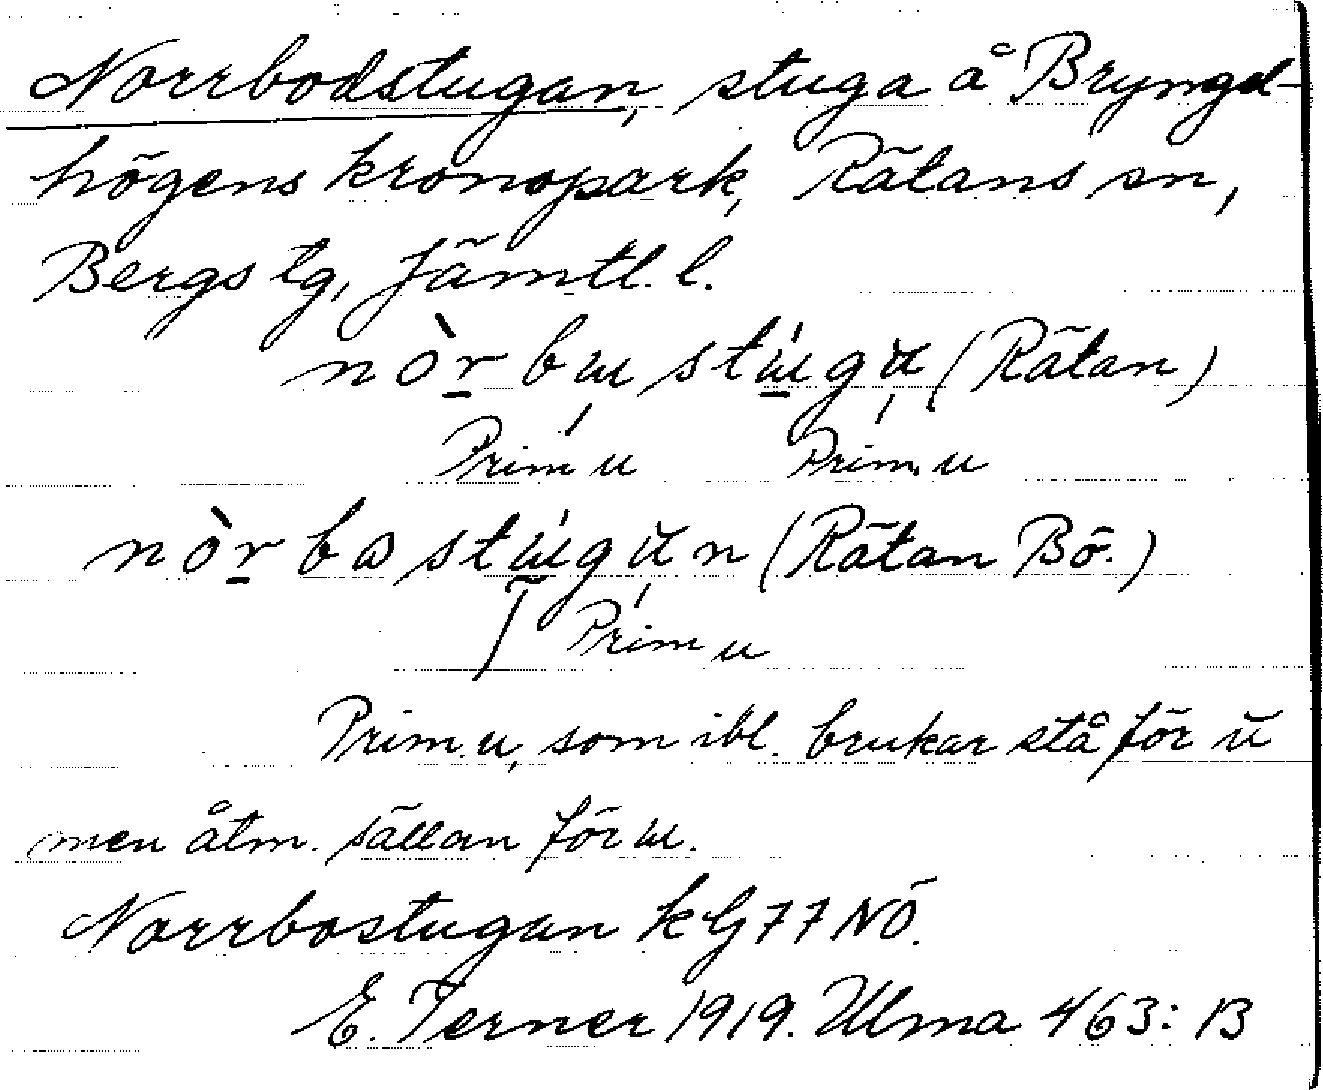 Norrbodstugan, stuga å Bryngel-
högens kronopark, Rätans sn,
Bergs tg, Jämtl. l.
nòr bɯ stɯ́gŭ (Rätan)
Prim u Prim. u
nòr bɷ stɯ́gŭn (Rätan Bö.)
Prim u
Prim. u, som ibl. brukar stå för ŭ
men åtm. sällan för ɯ.
Norrbostugan kG 77 NÖ.
E. Terner 1919. Ulma 463: 13